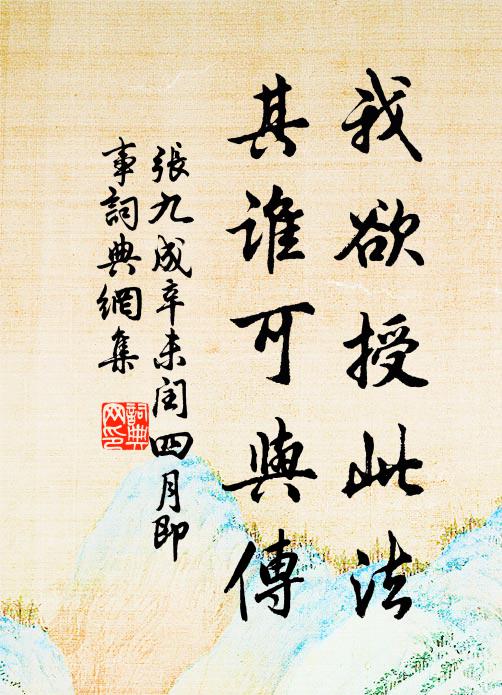 我欲授此法
其誰可與傳
張九成辛未閏四月即
事詞典網集
詞典
网印